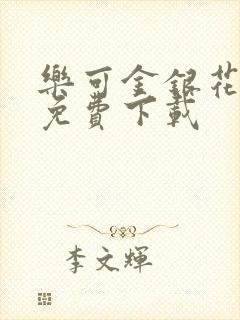 樂可金銀花
免費下載
李文輝